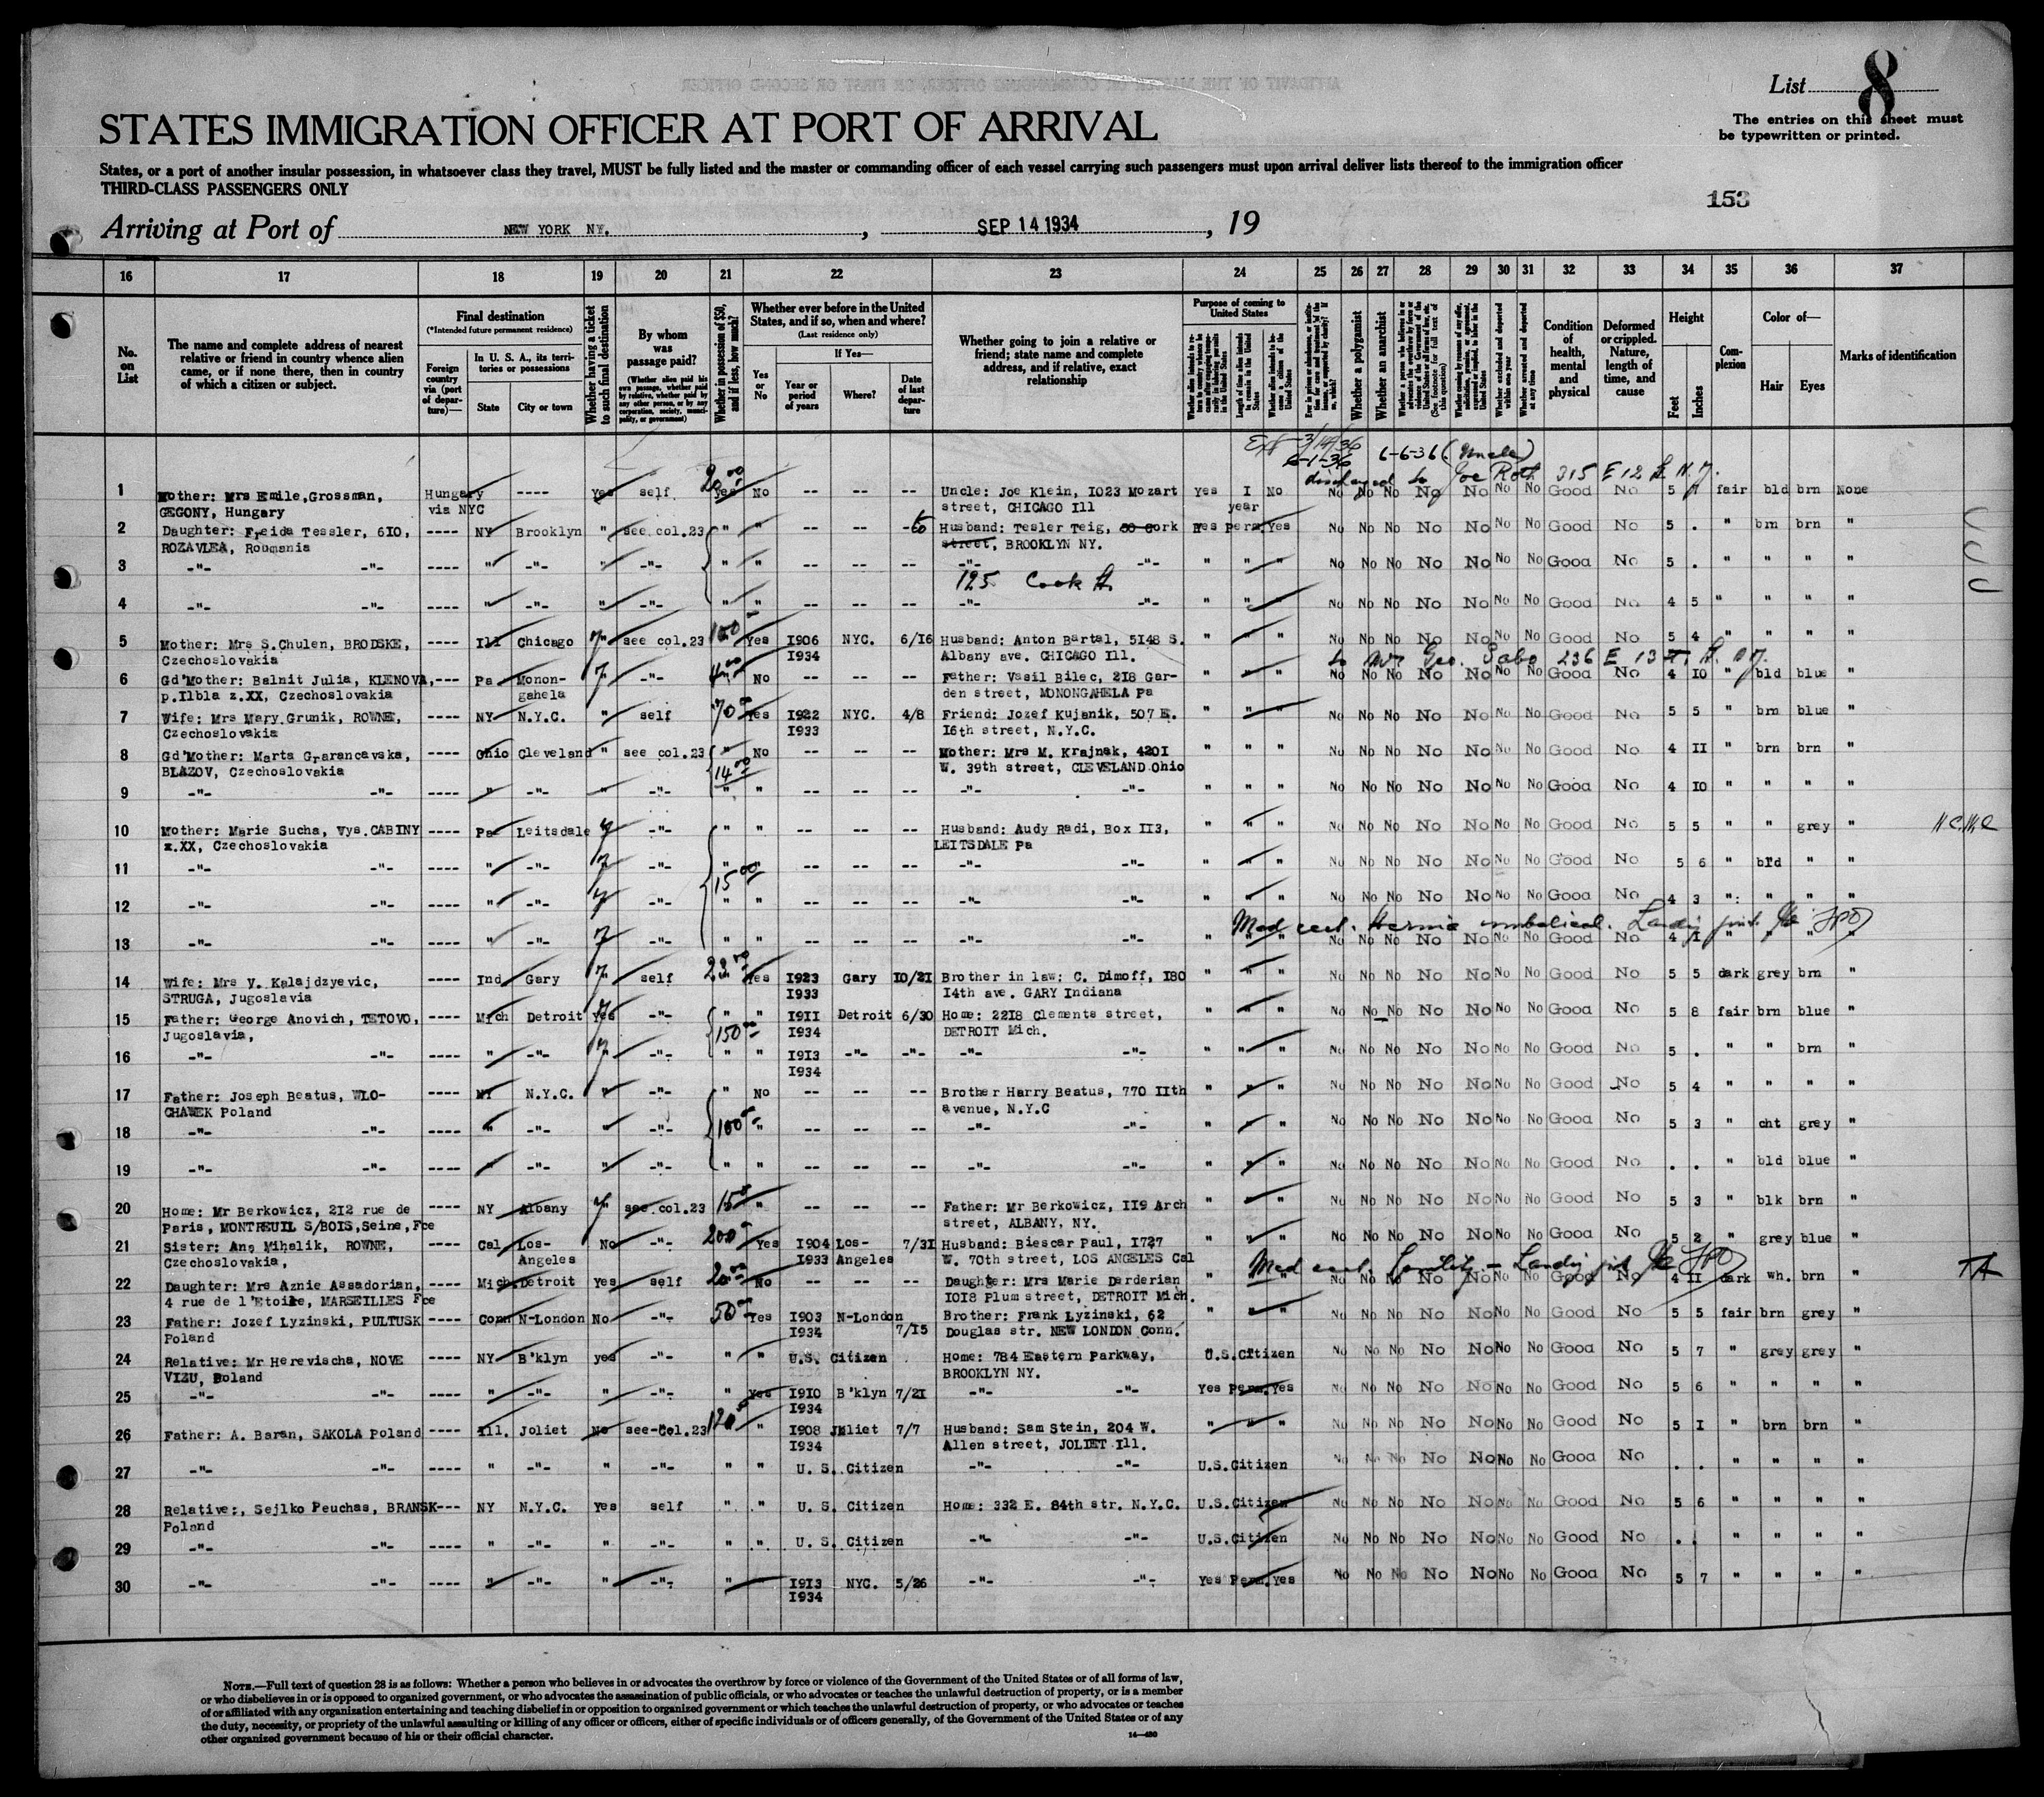 List 8
The entries on this sheet must
be typewritten or printed.
STATES IMMIGRATION OFFICER AT PORT OF ARRIVAL
States, or a port of another insular possession, in whatsoever class they travel, MUST be fully listed and the master or commanding officer of each vessel carrying such passengers must upon arrival deliver lists thereof to the immigration officer
THIRD-CLASS PASSENGERS ONLY
153
Arriving at Port of NEW YORK NY. , SEP 14 1934 , 19
16 17 18 19 20 21 22 23 24 25 26 27 28 29 30 31 32 33 34 35 36 37
No. on List
The name and complete address of nearest relative or friend in country whence alien came, or if none there, then in country of which a citizen or subject.
Final destination
(*Intended future permanent residence)
Foreign country via (port of departure)—
In U. S. A., its territories or possessions
State City or town
Whether having a ticket to such final destination
By whom was passage paid?
(Whether alien paid his own passage, whether paid by relative, whether paid by any other person, or by any corporation, society, municipality, or government)
Whether in possession of $50, and if less, how much?
Whether ever before in the United States, and if so, when and where?
(Last residence only)
Yes or No
If Yes—
Year or period of years Where? Date of last departure
Whether going to join a relative or friend; state name and complete address, and if relative, exact relationship
Purpose of coming to United States
Length of time alien intends to remain in the United States
Whether alien intends to become a citizen of the United States
Whether a polygamist
Whether an anarchist
Whether excluded and deported within one year
Whether arrested and deported at any time
Condition of health, mental and physical
Deformed or crippled. Nature, length of time, and cause
Height
Feet Inches
Complexion
Color of—
Hair Eyes
Marks of identification
Ext 3/14/36
6-1-36 6-6-36 (Uncle)
discharged to Joe Roth 315 E 12 St N.Y.
1 Mother: Mrs Emile,Grossman, Hungary ---- Yes self 20.00 Yes No -- -- -- Uncle: Joe Klein, 1023 Mozart Yes 1 No No No No No No No No Good No 5 1 fair bld brn None
GEGONY, Hungary via NYC street, CHICAGO Ill year
2 Daughter: Freida Tessler, 610, ---- NY Brooklyn " see col.23 " " -- -- -- to Husband: Tesler Teig, 50 Cork Yes perm. Yes No No No No No No No Good No 5 . " brn brn "
ROZAVLEA, Roumania street, BROOKLYN NY.
3 -"- -"- ---- " -"- " -"- " " -- -- -- -"- -"- " " " No No No No No No No Good No 5 . " " " "
125 Cook St.
4 -"- -"- ---- " -"- " -"- " " -- -- -- -"- -"- " " " No No No No No No No Good No 4 5 " " " "
5 Mother: Mrs S.Chulen, BRODSKE, ---- Ill Chicago " see col.23 100 Yes 1906 NYC. 6/16 Husband: Anton Bartal, 5148 S. " " " No No No No No No No Good No 5 4 " " " "
Czechoslovakia 1934 Albany ave. CHICAGO Ill.
to Mr Geo. Sabo 236 E 13 St. N.Y.
6 Gd'Mother: Balnit Julia, KLENOVA, ---- Pa Monon- " -"- 4.00 No -- -- -- Father: Vasil Bilec, 218 Gar- " " " No No No No No No No Good No 4 10 " bld blue "
p.Ilbla z.XX, Czechoslovakia gahela den street, MONONGAHELA Pa
7 Wife: Mrs Mary Grunik, ROWNE, ---- NY N.Y.C. " self 70.00 Yes 1922 NYC. 4/8 Friend: Jozef Kujanik, 507 E. " " " No No No No No No No Good No 5 5 " brn blue "
Czechoslovakia 1933 16th street, N.Y.C.
8 Gd'Mother: Marta Grarancavska, ---- Ohio Cleveland " see col.23 " No -- -- -- Mother: Mrs M. Krajnak, 4201 " " " No No No No No No No Good No 4 11 " brn brn "
BLAZOV, Czechoslovakia 14.00 W. 39th street, CLEVELAND Ohio
9 -"- -"- ---- " -"- " -"- " " -- -- -- -"- -"- " " " No No No No No No No Good No 4 10 " " " "
10 Mother: Marie Sucha, Vys.CABINY ---- Pa Leitsdale " -"- " " -- -- -- Husband: Audy Radi, Box 113, " " " No No No No No No No Good No 5 5 " " grey "
z.XX, Czechoslovakia LEITSDALE Pa
11 -"- -"- ---- " -"- " -"- " " -- -- -- -"- -"- " " " No No No No No No No Good No 5 6 " bld " "
15.00
12 -"- -"- ---- " -"- " -"- " " -- -- -- -"- -"- " " " No No No No No No No Good No 4 3 " " " "
Med cert. Hernia umbilical.
13 -"- -"- ---- " -"- " -"- " " -- -- -- -"- -"- " " " No No No No No No No Good No 4 1 " " " "
14 Wife: Mrs V. Kalajdzyevic, ---- Ind Gary " self 22.00 Yes 1923 Gary 10/21 Brother in law: C. Dimoff, 180 " " " No No No No No No No Good No 5 5 dark grey brn "
STRUGA, Jugoslavia 1933 14th ave. GARY Indiana
15 Father: George Anovich, TETOVO, ---- Mich Detroit Yes -"- " " 1911 Detroit 6/30 Home: 2218 Clements street, " " " No No No No No No No Good No 5 8 fair brn blue "
Jugoslavia, 150.00 1934 DETROIT Mich.
16 -"- -"- ---- " -"- " -"- " " 1913 -"- -"- -"- -"- " " " No No No No No No No Good No 5 . " " brn "
1934
17 Father: Joseph Beatus, WLO- ---- NY N.Y.C. " -"- " No -- -- -- Brother Harry Beatus, 770 11th " " " No No No No No No No Good No 5 4 " " " "
CHAWEK Poland avenue, N.Y.C
18 -"- -"- ---- " -"- " -"- 100.00 " -- -- -- -"- -"- " " " No No No No No No No Good No 5 3 " cht grey "
19 -"- -"- ---- " -"- " -"- " " -- -- -- -"- -"- " " " No No No No No No No Good No . . " bld blue "
20 Home: Mr Berkowicz, 212 rue de ---- NY Albany " see.col.23 15.00 " -- -- -- Father: Mr Berkowicz, 119 Arch " " " No No No No No No No Good No 5 3 " blk brn "
Paris, MONTREUIL S/BOIS,Seine,Fce street, ALBANY, NY.
21 Sister: Ana Mihalik, ROWNE, ---- Cal Los- No -"- 200 Yes 1904 Los- 7/31 Husband: Biescar Paul, 1727 " " " No No No No No No No Good No 5 2 " grey blue "
Czechoslovakia, Angeles 1933 Angeles W. 70th street, LOS ANGELES Cal
Med cert. Senility
22 Daughter: Mrs Aznie Assadorian, ---- Mich. Detroit Yes self 20.00 No -- -- -- Daughter: Mrs Marie Darderian " " " No No No No No No No Good No 4 11 dark wh. brn "
4 rue de l'Etoile, MARSEILLES Fce 1018 Plum street, DETROIT Mich.
23 Father: Jozef Lyzinski, PULTUSK ---- Conn N-London No -"- 50 Yes 1903 N-London Brother: Frank Lyzinski, 62 " " " No No No No No No No Good No 5 5 fair brn grey "
Poland 1934 7/15 Douglas str. NEW LONDON Conn.
24 Relative: Mr Herevischa, NOVE ---- NY B'klyn yes -"- " " U.S. Citizen Home: 784 Eastern Parkway, U.S.Citizen No No No No No No No Good No 5 7 " grey grey "
VIZU, Poland BROOKLYN NY.
25 -"- -"- ---- " -"- " -"- " Yes 1910 B'klyn 7/21 -"- -"- Yes Perm. Yes No No No No No No No Good No 5 6 " " " "
1934
26 Father: A. Baran, SAKOLA Poland ---- Ill. Joliet No see-Col.23 120 " 1908 Joliet 7/7 Husband: Sam Stein, 204 W. " " " No No No No No No No Good No 5 1 " brn brn "
1934 Allen street, JOLIET Ill.
27 -"- -"- ---- " -"- " -"- " " U. S. Citizen -"- -"- U.S.Citizen No No No No No No No Good No . . " " " "
28 Relative:, Sejlko Peuchas, BRANSK--- NY N.Y.C. yes self " " U. S. Citizen Home: 332 E. 84th str. N.Y.C. U.S.Citizen No No No No No No No Good No 5 6 " " " "
Poland
29 -"- -"- ---- " -"- " -"- " " U. S. Citizen -"- -"- U.S.Citizen No No No No No No No Good No . . " " " "
30 -"- -"- ---- " -"- " -"- " 1913 NYC. 5/26 -"- -"- Yes Perm. Yes No No No No No No No Good No 5 7 " " " "
1934
NOTE.—Full text of question 28 is as follows: Whether a person who believes in or advocates the overthrow by force or violence of the Government of the United States or of all forms of law,
or who disbelieves in or is opposed to organized government, or who advocates the assassination of public officials, or who advocates or teaches the unlawful destruction of property, or is a member
of or affiliated with any organization entertaining and teaching disbelief in or opposition to organized government or which teaches the unlawful destruction of property, or who advocates or teaches
the duty, necessity, or propriety of the unlawful assaulting or killing of any officer or officers, either of specific individuals or of officers generally, of the Government of the United States or of any
other organized government because of his or their official character.
14—480